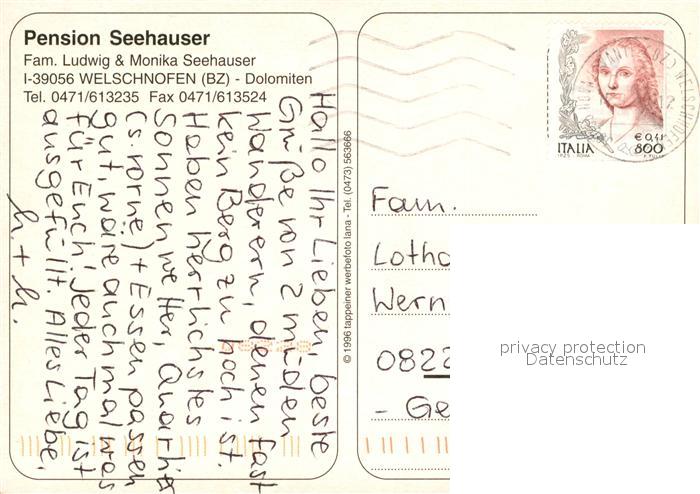 Pension Seehauser
Fam. Ludwig & Monika Seehauser
I-39056 WELSCHNOFEN (BZ) - Dolomiten
Tel. 0471/613235 Fax 0471/613524
Hallo Ihr Lieben, beste
Grüße von 2 müden
Wanderern, denen fast
kein Berg zu hoch ist.
Haben herrlichstes
Sonnenwetter, Quartier
(s. vorne) + Essen passen
gut, wäre auch mal was
für Euch! Jeder Tag ist
ausgefüllt. Alles Liebe.
h. + h.
© 1996 tappeiner werbefoto lana - Tel. (0473) 563666
€ 0,41
ITALIA 800
I.P.Z.S. - ROMA
Fam.
Lotha
Wern
0822
- Ge
privacy protection
Datenschutz